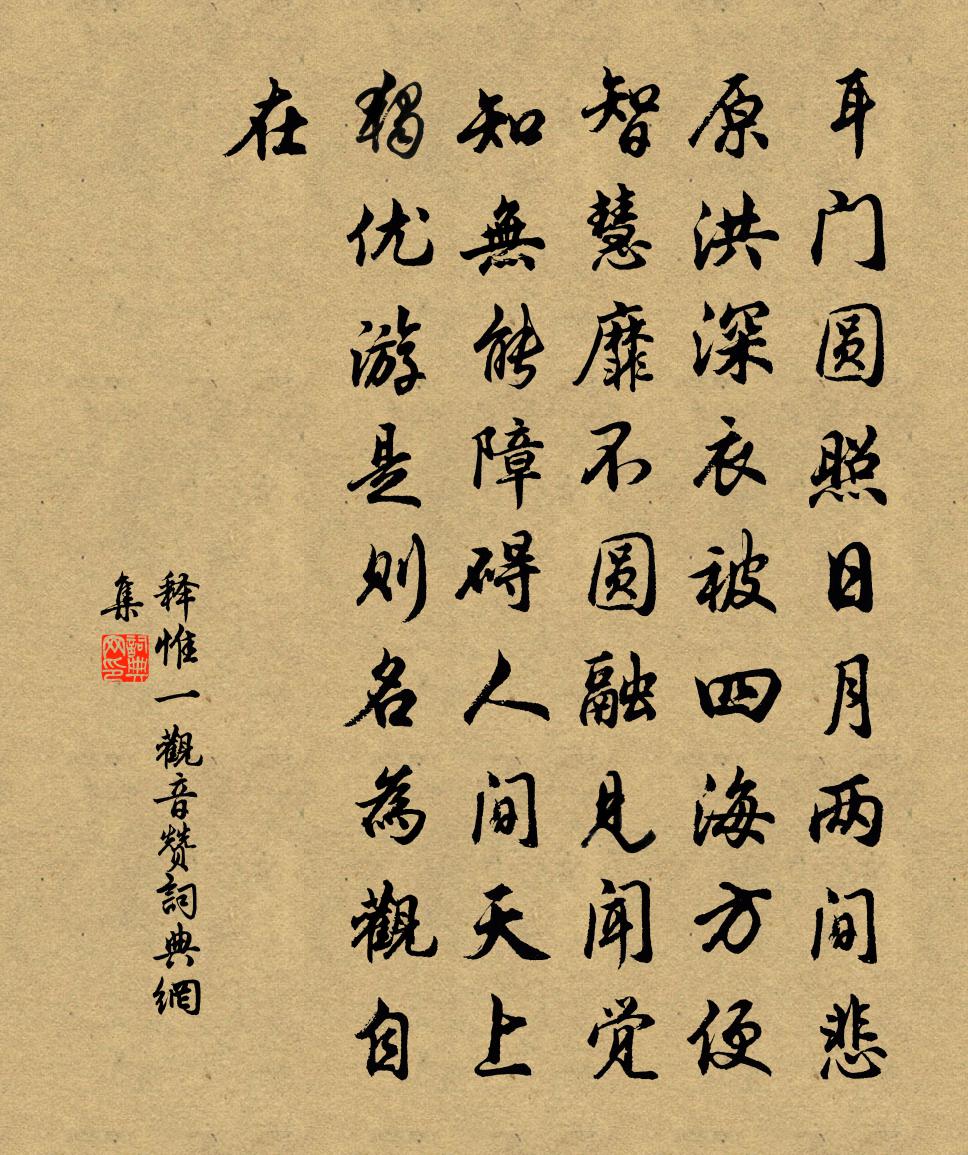 耳门圆照日月两间悲
原洪深衣被四海方便
智慧靡不圆融见闻觉
知無能障碍人间天上
独优游是则名為觀自
在
释惟一觀音赞詞典網
集
詞典网印